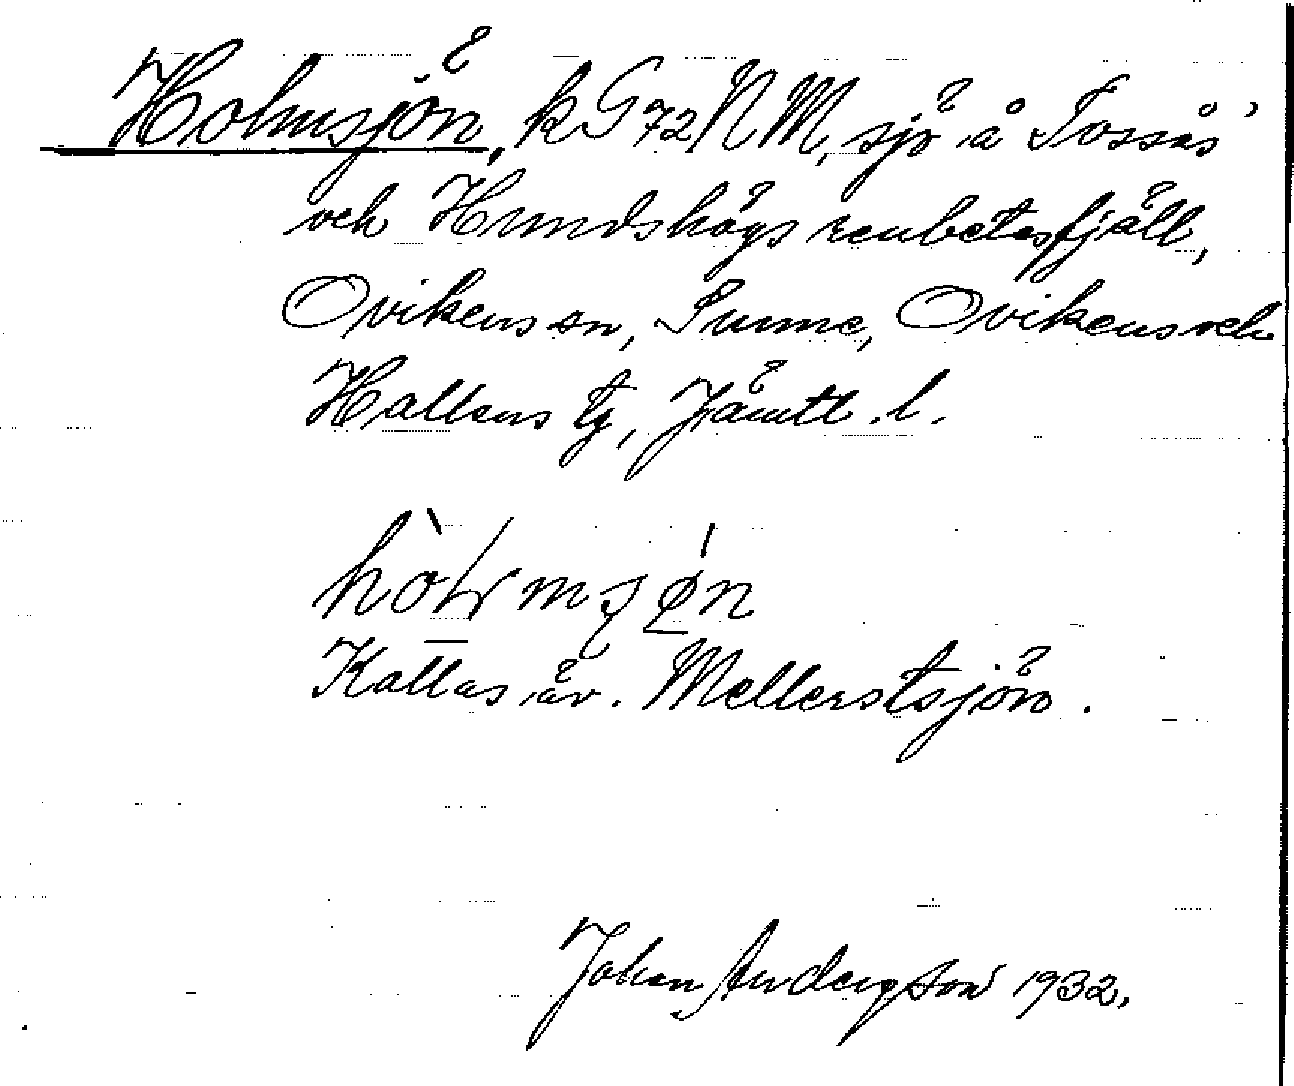 Holmsjön, k G 72 N M, sjö å Tossås'
och Hundshögs renbetesfjäll,
Ovikens sn, Sunne, Ovikens och
Hallens tg, Jämtl. l.
Kallas äv. Mellerstsjön.
Johan Andersson 1932.